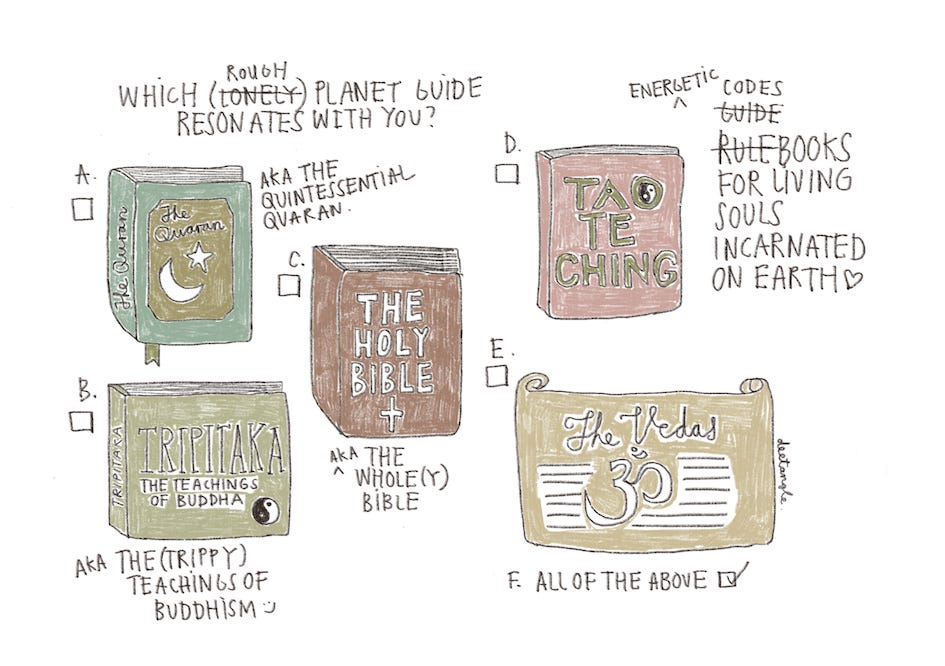 WHICH (LONELY) PLANET GUIDE
ROUGH
RESONATES WITH YOU?
A.
The Quran
The Quaran
AKA THE
QUINTESSENTIAL
QUARAN.
B.
TRIPITAKA
TRIPITAKA
THE TEACHINGS
OF BUDDHA
AKA THE (TRIPPY)
TEACHINGS OF
BUDDHISM
C.
THE
HOLY
BIBLE
AKA THE
WHOLE(Y)
BIBLE
D.
TAO
TE
CHING
ENERGETIC CODES
GUIDE
RULEBOOKS
FOR LIVING
SOULS
INCARNATED
ON EARTH♡
E.
The Vedas
ॐ
deetangle.
F. ALL OF THE ABOVE